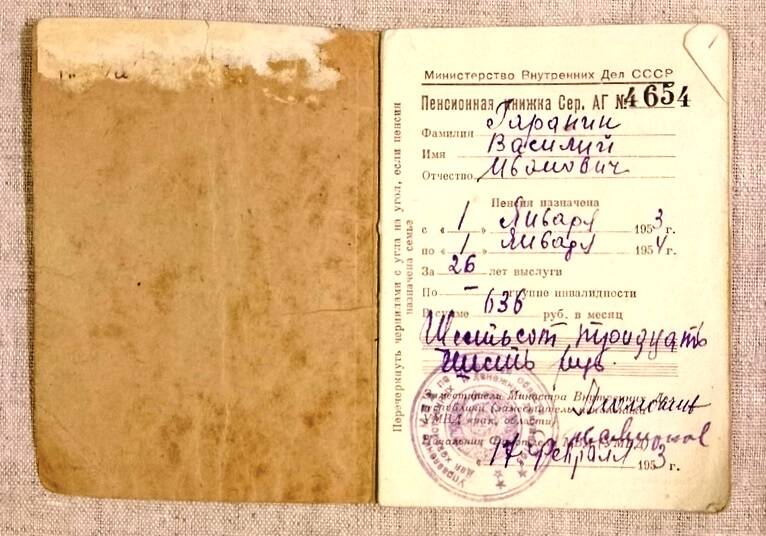 Министерство Внутренних Дел СССР
Пенсионная книжка Сер. АГ № 4654
Фамилия Гаранин
Имя Василий
Отчество Иванович
Пенсия назначена
с « 1 » Января 1953 г.
по « 1 » Января 1954 г.
За 26 лет выслуги
По — группе инвалидности
В сумме 636 руб. в месяц
Шестьсот тридцать
шесть руб.
Заместитель Министра Внутренних Дел
республики (заместитель начальника
УМВД края, области)
Начальник
« 17 » Февраля 1953 г.
Перечеркнуть чернилами с угла на угол, если пенсия
назначена семье